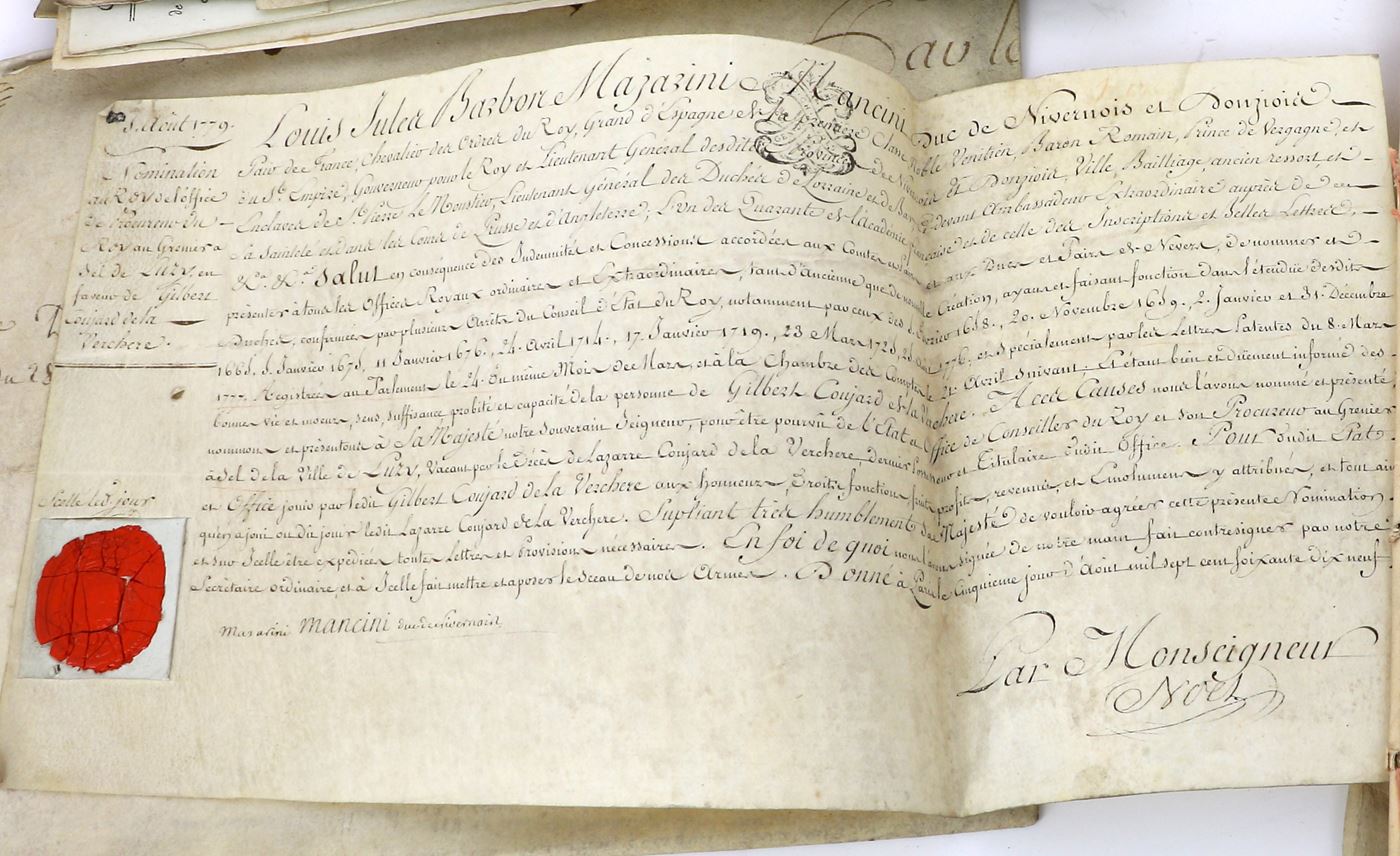 5. Août 1779.
Nomination
au ROY de l'office
de Procureur du
Roy au Grenier a
Sel de LUZY, en
faveur de Gilbert
Coujard de la
Verchere.
Scellé led. jour
Louis Jules Barbon Mazarini Mancini Duc de Nivernois et Donziois
Pair de France, Chevalier des Ordres du Roy, Grand d'Espagne de la Premiere Classe, Noble Venitien, Baron Romain, Prince de Vergagne, et
du St. Empire, Gouverneur pour le Roy et Lieutenant General desdits de Nivernois et Donziois, Ville, Bailliage ancien ressort et
Enclaves de St. Pierre Le Moustier, Lieutenant Général des Duchés de Lorraine et de Bar, cy devant Ambassadeur Extraordinaire auprès de
sa Sainteté et dans les Cours de Prusse et d'Angleterre, L'un des Quarante de l'Academie françoise et de celle des Inscriptions et Belles Lettres,
Salut en conséquence des Indemnités et Concessions accordées aux Comtes et aux Ducs et Pairs de Nevers, de nommer et
présenter à tous les Offices Royaux ordinaires et Extraordinaires, tant d'Ancienne que de nouvelle Création, ayans et faisant fonction dans l'étendue desdits
Duchés, confirmées par plusieurs Arrêts du Conseil d'Etat du Roy, notamment par ceux des 1658, 20. Novembre 1659. 2. Janvier et 31. Décembre
1665. 5. Janvier 1675, 11 Janvier 1676, 24. Avril 1714, 17. Janvier 1719, 23 Mars 1725, 1776, et spécialement par les Lettres Patentes du 8. Mars
1777. Registrées au Parlement le 24. du même Mois de Mars, et à la Chambre des Comptes le 21. Avril suivant. Et étant bien et duement informé des
bonnes vie et moeurs, sens, suffisance, probité et capacité de la personne de Gilbert Coujard de la Verchere. A ces Causes nous l'avons nommé et présenté
nommons et présentons à Sa Majesté notre Souverain Seigneur, pour être pourvû de l'Etat et Office de Conseiller du Roy et son Procureur au Grenier
à Sel de la Ville de LUZY, Vacant par le Décès de Lazarre Coujard de la Verchere, dernier Possesseur et Titulaire dudit Office. Pour dudit Etat
et Office jouir par ledit Gilbert Coujard de la Verchere aux honneurs, Droits, fonctions, fruits, profits, revenus, et Emolumens y attribués, et tout ainsi
qu'en a joui ou dû jouir ledit Lazarre Coujard de la Verchere. Supliant très humblement sa Majesté de vouloir agréer cette présente Nomination
et sur Icelle être expédiées toutes Lettres et Provisions nécessaires. En foi de quoi nous l'avons signée de notre main fait contresigner par notre
Secrétaire ordinaire, et à Icelle fait mettre et aposer le Sceau de nos Armes. Donné à Paris le Cinquieme jour d'Août mil sept cent soixante dix neuf
Mazarini Mancini duc de Nivernois
Par Monseigneur
Noël